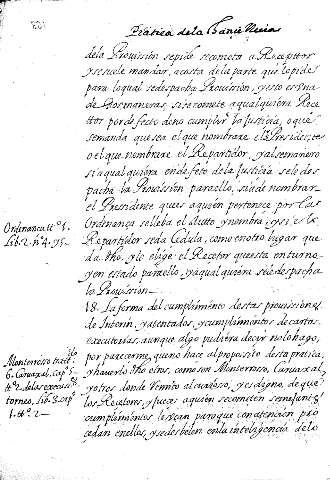 Práctica de la Chancillería
de la Provission se pide se cometa a Receptor
y se suele mandar, a costa de la parte que lo pide
para lo qual se despacha Provission, y esto es en a
de dos maneras, si se comete a qualquiera Recep
tor por defecto de no cumplir la Justicia, o que
se manda que sea el que nombrare el S. Presidente
o el que nombrare el Repartidor, y al semanero
si a qualquiera en defeto de la Justicia se lo des
pacha la Provission para ello, si a de nombrar
el Presidente pues a quien pertenece por las
Ordenança se lleba el dicho y nombra, y si es la
Repartidor se da Cedula, como en otro lugar que
da dho, y lo elige el Recetor que esta en turno
y en estado para ello, y a qualquiera se despacha
la Provission
18. La forma del cumplimiento destas provissiones
de Interin, y atentados, y cumplimientos de cartas
executorias, aunque algo pudiera decir no lo hago,
por parecerme, que no hace al proposito desta pratica,
y haverlo dho otros, como son Monterroso, Carvaxal,
y otros donde remito al curioso, y es digno, de que
los Recetores, y jueces a quien se cometen semejantes
cumplimientos lean para que con atencion pro
cedan en ellos, y se desbelen en la inteligencia de lo
Ordenança tt.º 5.
Lib. 2. n.º 4. 95.
Monterroso trat.º
6. Carvaxal, cap.º 5
tt.º 2. de las execuciones
torneo, lib. 3. cap.
1. n.º 2.